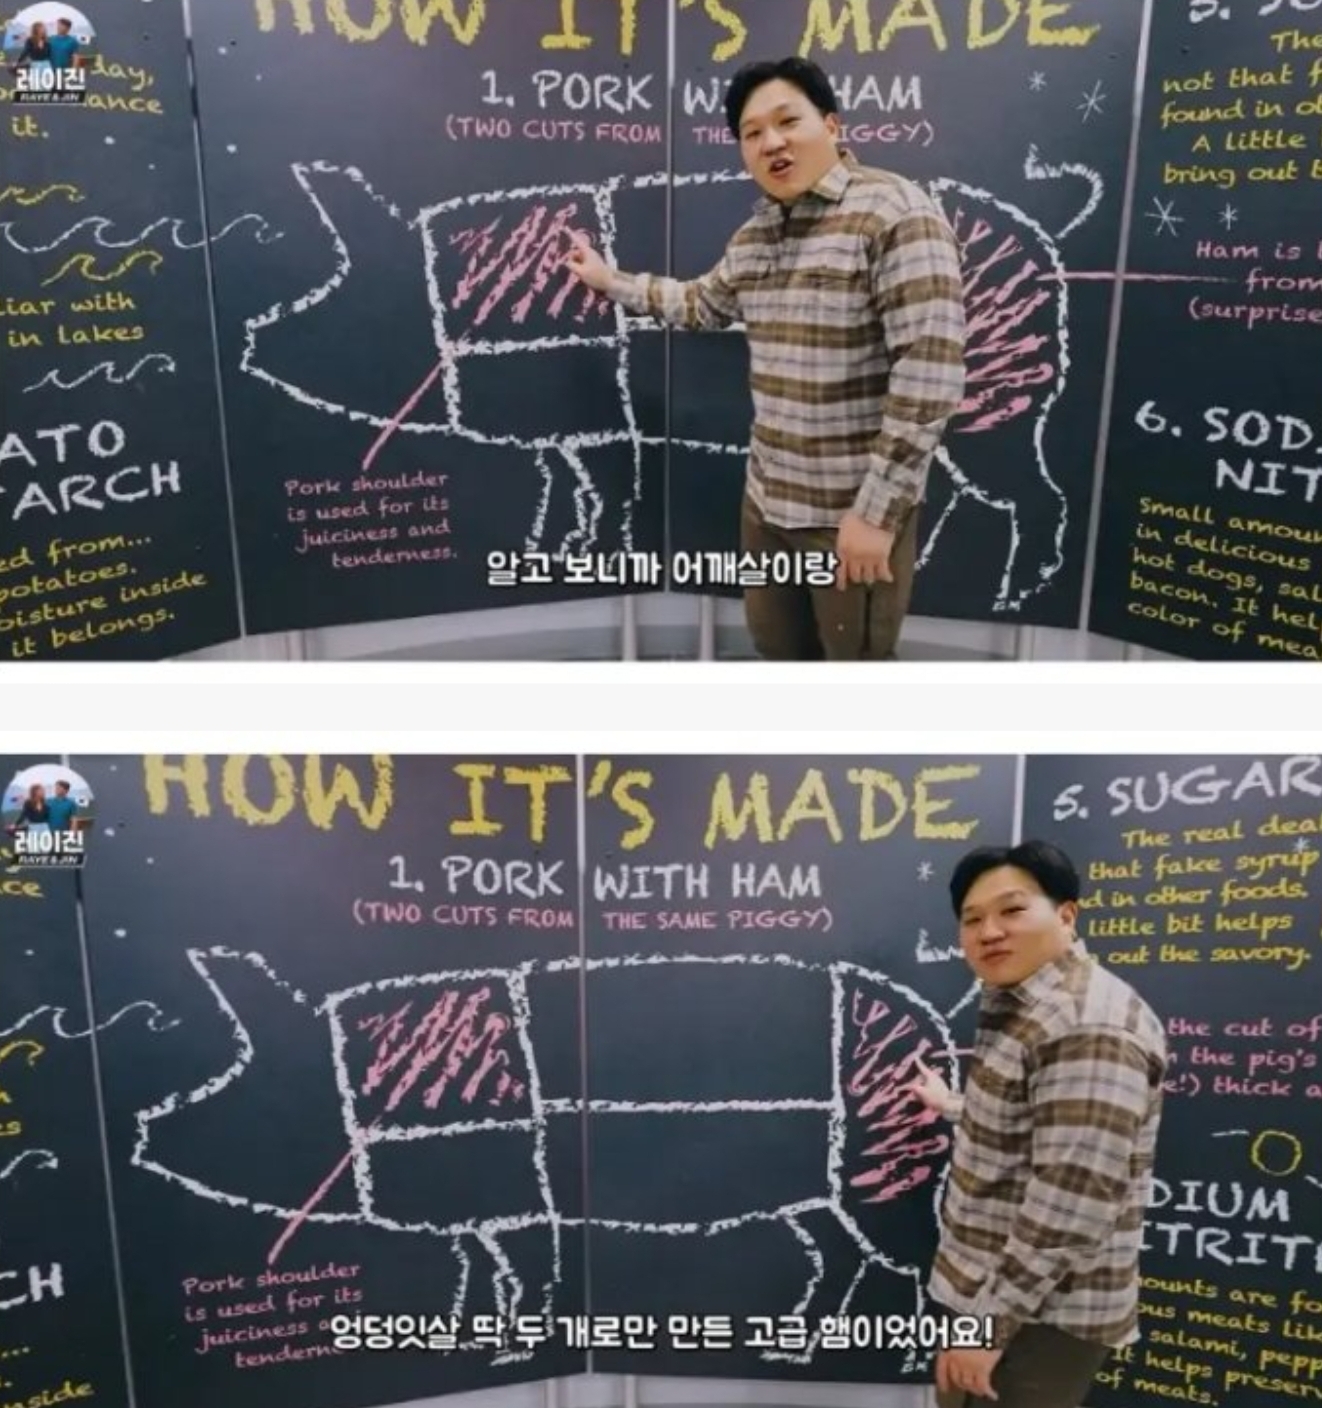 레이진
RAYE & JIN
day,
ance
it.
iar with
in lakes
ATO
ARCH
ed from...
potatoes.
oisture inside
it belongs.
HOW IT'S MADE
1. PORK HAM
(TWO CUTS FROM THE IGGY)
Pork shoulder
is used for its
juiciness and
tenderness.
5.
The
not that f
found in
A little
bring out
Ham is
from
(surprise
6. SOD
NIT
Small amoun
in delicious
hot dogs, sal
bacon. It hel
color of mea
알고 보니까 어깨살이랑
레이진
RAYE & JIN
ce
CH
...
nside
HOW IT'S MADE
1. PORK WITH HAM
(TWO CUTS FROM THE SAME PIGGY)
Pork shoulder
is used for its
juiciness a
tendern
5. SUGAR
The real deal
that fake syrup
d in other foods.
little bit helps
out the savory.
the cut of
the pig's
e!) thick a
DIUM
ITRIT
ounts are fo
ous meats lik
salami, pepp
It helps preser
of meats.
엉덩잇살 딱 두 개로만 만든 고급 햄이었어요!